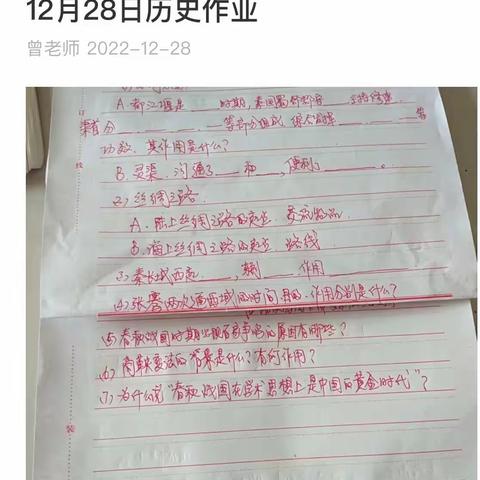 12月28日历史作业
曾老师 2022-12-28
A.都江堰是____时期,秦国蜀郡郡守____主持修建
渠首分____、____、____等部分组成,综合发挥____、____等
功效.其作用是什么?
B.灵渠沟通了____和____,便利了____。
(2)丝绸之路.
A.陆上丝绸之路的意义 交流物品
B.海上丝绸之路的意义 路线
(3)秦长城西起____,东到____ 作用____
(4)张骞两次通西域的时间、目的、作用分别是什么?
(5)春秋战国时期出现百家争鸣的原因有哪些?
(6)商鞅变法的背景是什么?有何作用?
(7)为什么说“春秋战国在学术思想上是中国的黄金时代”?